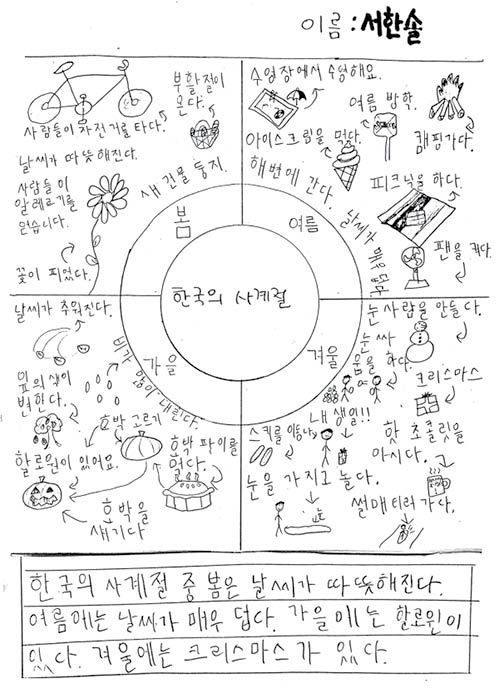 이름 : 서한솔
부활절이
온다.
사람들이 자전거를 타다.
날씨가 따뜻해진다.
사람들이
알레르기를
얻습니다.
새 건물 둥지.
꽃이 피었다.
봄
수영장에서 수영해요.
여름 방학.
캠핑가다.
아이스크림을 먹다.
해변에 간다.
피크닉을 하다.
날씨가 매우 덥다.
팬을 켜다.
여름
한국의 사계절
날씨가 추워진다.
잎의 색이
변한다.
비가 많이 내린다.
가을
호박 고르기
할로윈이 있어요.
호박 파이를
먹다.
호박을
새기다
눈사람을 만들다.
눈 싸
움을 하다.
겨울
크리스마스
내 생일!!
스키를 이동나
핫 초콜릿을
마시다.
눈을 가지고 놀다.
썰매타러 가다.
한국의 사계절 중 봄은 날씨가 따뜻해진다.
여름에는 날씨가 매우 덥다. 가을에는 할로윈이
있다. 겨울에는 크리스마스가 있다.